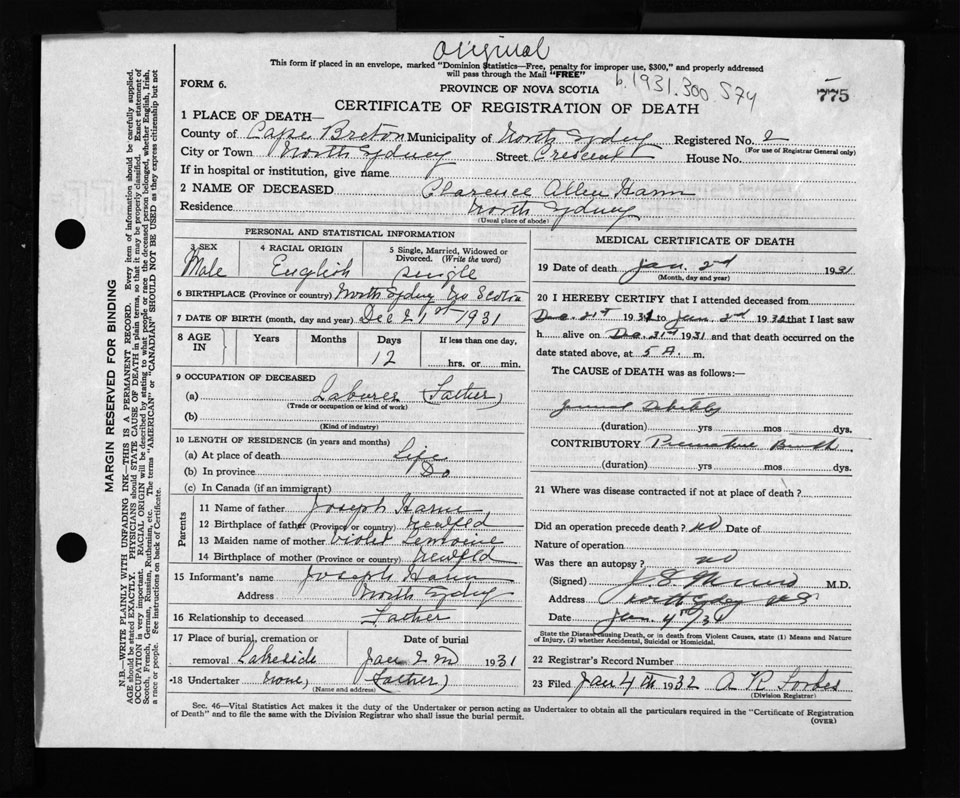 Original
This form if placed in an envelope, marked "Dominion Statistics—Free, penalty for improper use, $300," and properly addressed
will pass through the Mail "FREE"
b.1931.300574
FORM 6.
PROVINCE OF NOVA SCOTIA
775
CERTIFICATE OF REGISTRATION OF DEATH
1 PLACE OF DEATH—
County of Cape Breton Municipality of North Sydney Registered No. 2
(For use of Registrar General only)
City or Town North Sydney Street Crescent House No.
If in hospital or institution, give name
2 NAME OF DECEASED Clarence Allen Hann
Residence North Sydney
(Usual place of abode)
PERSONAL AND STATISTICAL INFORMATION
3 SEX 4 RACIAL ORIGIN 5 Single, Married, Widowed or Divorced. (Write the word)
Male English single
6 BIRTHPLACE (Province or country) North Sydney No Scotia
7 DATE OF BIRTH (month, day and year) Dec 21st 1931
8 AGE IN Years Months Days If less than one day,
12 hrs. or min.
9 OCCUPATION OF DECEASED
(a) Laburer (Father)
(Trade or occupation or kind of work)
(b)
(Kind of industry)
10 LENGTH OF RESIDENCE (in years and months)
(a) At place of death Life
(b) In province Do
(c) In Canada (if an immigrant)
Parents
11 Name of father Joseph Hann
12 Birthplace of father (Province or country) Newfld
13 Maiden name of mother Violet Lemoine
14 Birthplace of mother (Province or country) Newfld
15 Informant's name Joseph Hann
Address North Sydney
16 Relationship to deceased Father
17 Place of burial, cremation or Date of burial
removal Lakeside Jan 2nd 1931
18 Undertaker None (Father)
(Name and address)
MEDICAL CERTIFICATE OF DEATH
19 Date of death Jan. 2d 1931
(Month, day and year)
20 I HEREBY CERTIFY that I attended deceased from
Dec. 21st 1931 to Jan. 2d 1932 that I last saw
h alive on Dec. 31st 1931 and that death occurred on the
date stated above, at 5 A. m.
The CAUSE of DEATH was as follows:
Debility
(duration) yrs mos dys.
CONTRIBUTORY Premature Birth
(duration) yrs mos dys.
21 Where was disease contracted if not at place of death?
Did an operation precede death? no Date of
Nature of operation
Was there an autopsy? no
(Signed) J. S. Munro M.D.
Address North Sydney N.S.
Date Jan. 4th/31
State the Disease causing Death, or in death from Violent Causes, state (1) Means and Nature
of Injury, (2) whether Accidental, Suicidal or Homicidal.
22 Registrar's Record Number
23 Filed Jan 4th 1932 A R Forbes
(Division Registrar)
Sec. 46—Vital Statistics Act makes it the duty of the Undertaker or person acting as Undertaker to obtain all the particulars required in the "Certificate of Registration
of Death" and to file the same with the Division Registrar who shall issue the burial permit.
(OVER)
MARGIN RESERVED FOR BINDING
N.B.—WRITE PLAINLY WITH UNFADING INK—THIS IS A PERMANENT RECORD. Every item of information should be carefully supplied.
AGE should be stated EXACTLY. PHYSICIANS should STATE CAUSE OF DEATH in plain terms, so that it may be properly classified. Exact statement of
OCCUPATION is very important. RACIAL ORIGIN will be described by stating to what people or race the deceased person belonged, whether English, Irish,
Scotch, French, German, Russian, Ruthenian, etc. The terms "AMERICAN" or "CANADIAN" SHOULD NOT BE USED as they express citizenship but not
a race or people. See instructions on back of Certificate.